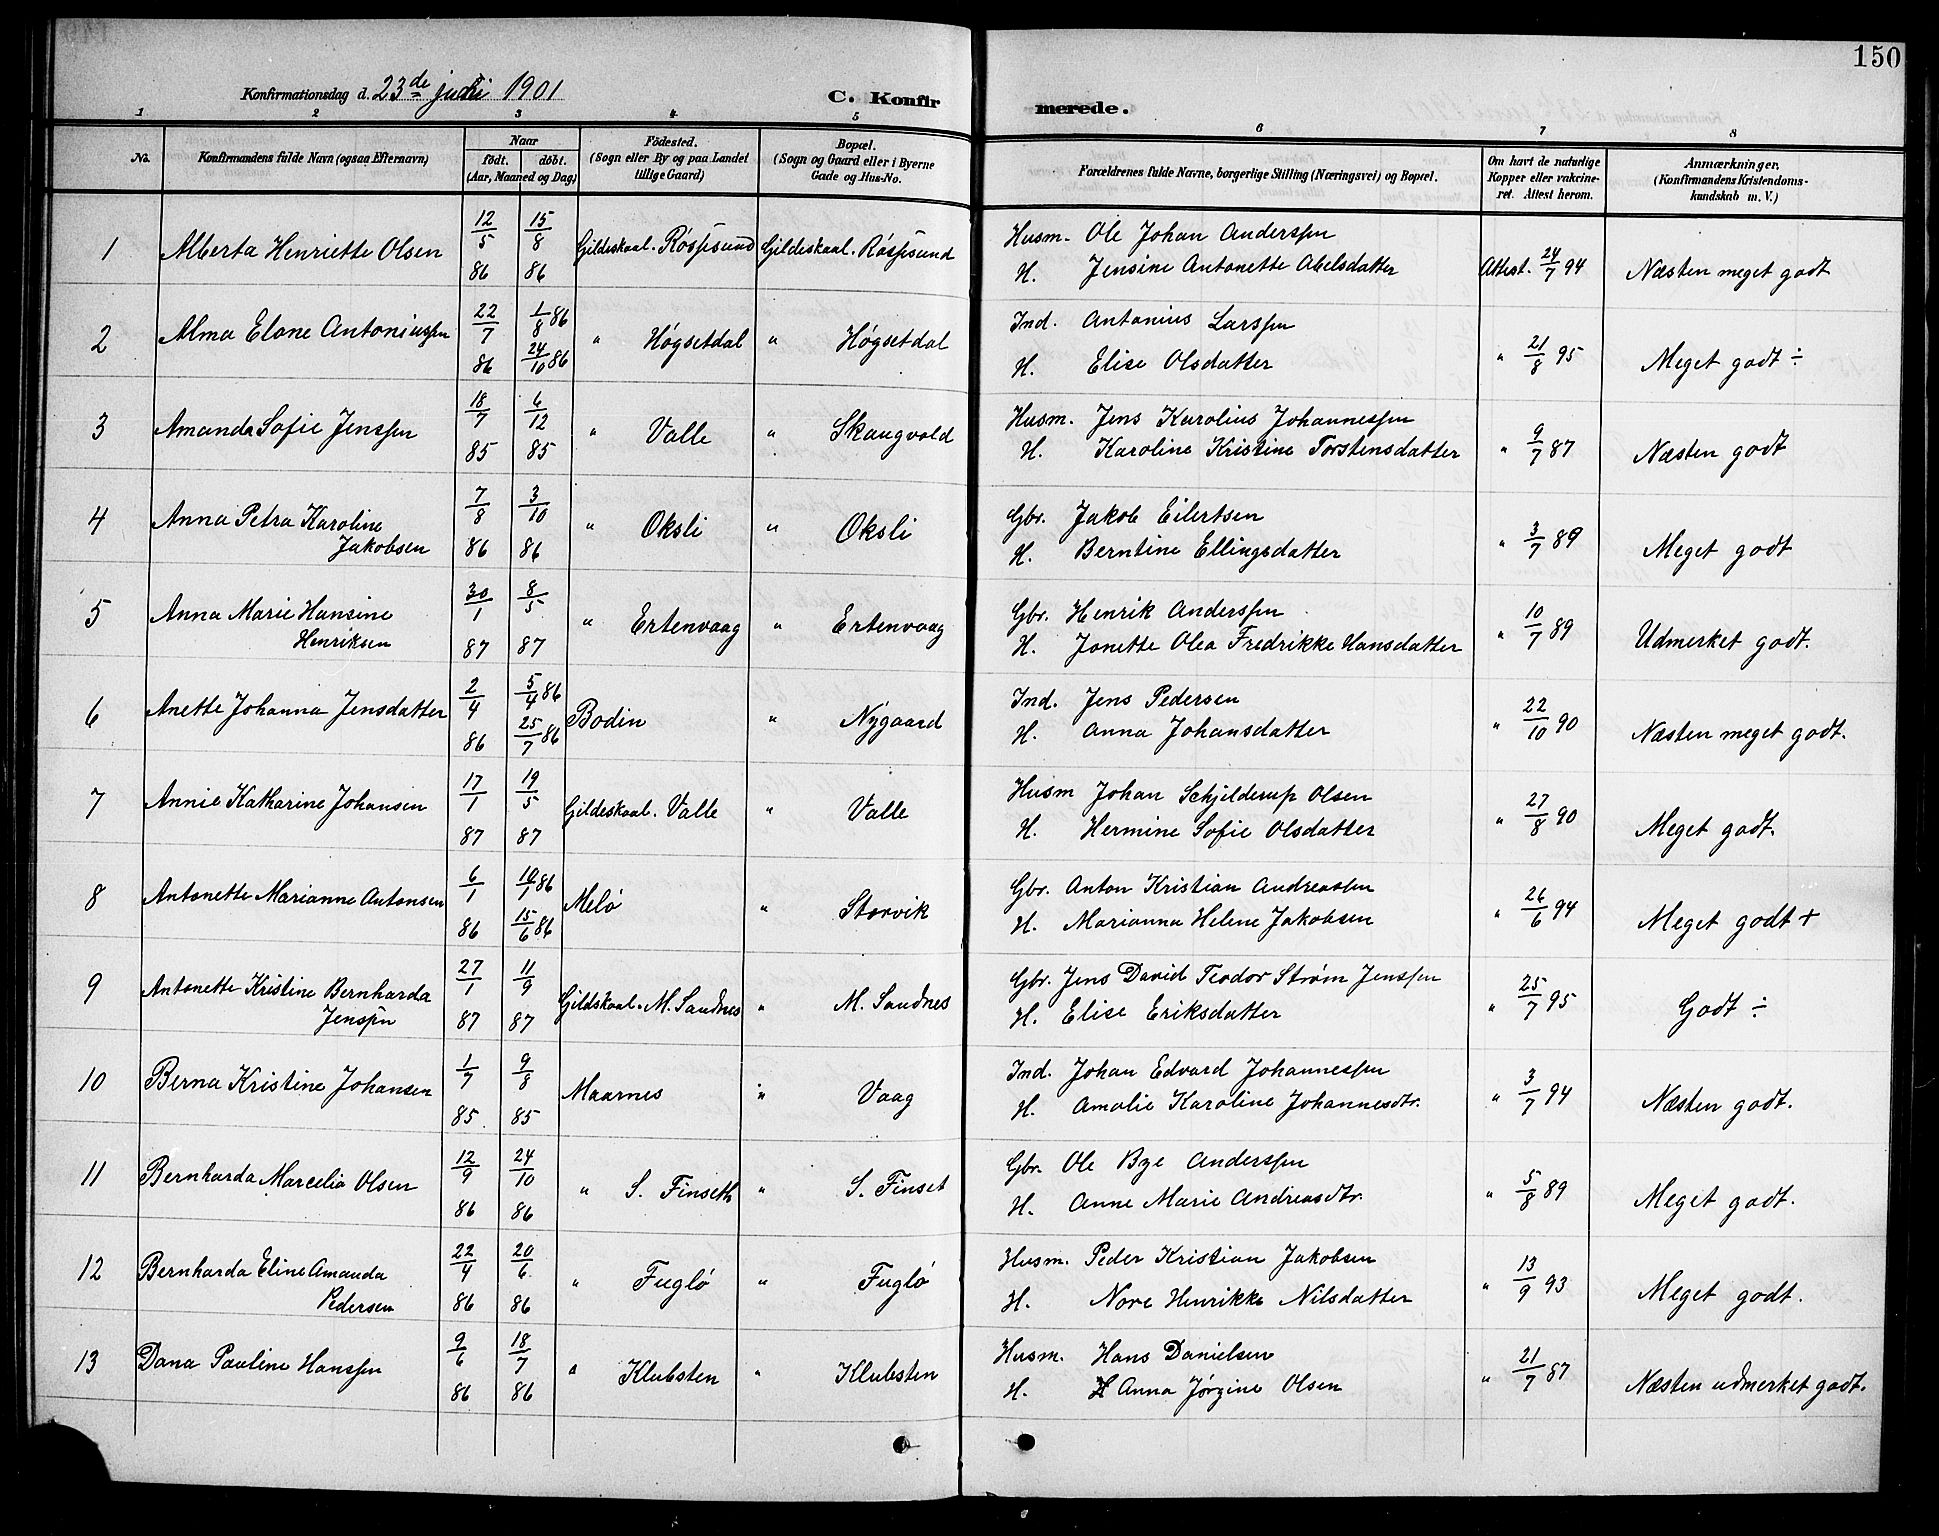 150
Konfirmationsdag d. 23de juni 1901 C. Konfirmerede.
1 2 3 4 5 6 7 8
No. Konfirmandens fulde Navn (ogsaa Efternavn) Naar født. døbt. (Aar, Maaned og Dag) Fødested. (Sogn eller By og paa Landet tillige Gaard) Bopæl. (Sogn og Gaard eller i Byerne Gade og Hus-No. Forældrenes fulde Navne, borgerlige Stilling (Næringsvei) og Bopæl. Om havt de naturlige Kopper eller vakcineret. Attest herom. Anmærkninger. (Konfirmandens Kristendomskundskab m. V.)
1 Alberta Henriette Olsen 12/5 86 15/8 86 Gildeskaal. Røssesund Gildeskaal. Røssesund Husm. Ole Johan Anderssen
H. Jensine Antonette Abelsdatter Attest. 24/7 94 Næsten meget godt
2 Alma Elane Antoniussen 22/7 86 1/8 86 24/10 86 " Høgsetdal " Høgsetdal Ind. Antonius Larssen
H. Elise Olsdatter " 21/8 95 Meget godt ÷
3 Amanda Sofie Jenssen 18/7 85 6/12 85 " Valle " Skaugvold Husm. Jens Karolius Johannessen
H. Karoline Kristine Torstensdatter " 9/7 87 Næsten godt
4 Anna Petra Karoline Jakobsen 7/8 86 3/10 86 " Oksli " Oksli Gbr. Jakob Eilertsen
H. Berntine Ellingsdatter " 3/7 89 Meget godt
5 Anna Marie Hansine Henriksen 30/1 87 8/5 87 " Ertenvaag " Ertenvaag Gbr. Henrik Anderssen
H. Jonette Olea Fredrikke Hansdatter " 10/7 89 Udmerket godt.
6 Anette Johanna Jensdatter 2/4 86 5/4 86 25/7 86 Bodin " Nygaard Ind. Jens Pedersen
H. Anna Johansdatter " 22/10 90 Næsten meget godt.
7 Annie Katharine Johansen 17/1 87 19/5 87 Gildeskaal. Valle " Valle Husm Johan Schjelderup Olsen
H. Hermine Sofie Olsdatter " 27/8 90 Meget godt.
8 Antonette Marianne Antonsen 6/1 86 10/1 86 15/6 86 Melø " Storvik Gbr. Anton Kristian Andreassen
H. Marianna Helene Jakobsen " 26/6 94 Meget godt +
9 Antonette Kristine Bernharda Jenssen 27/1 87 11/9 87 Gildskaal. M. Sandnes " M. Sandnes Gbr. Jens David Teodor Strøm Jenssen
H. Elise Eriksdatter " 25/7 95 Godt ÷
10 Berna Kristine Johansen 1/7 85 9/8 85 Maarnes " Vaag Ind. Johan Edvard Johannessen
H. Amalie Karoline Johannesdtr. " 3/7 94 Næsten godt.
11 Bernharda Marcelia Olsen 12/9 86 24/10 86 " S. Finseth " S. Finset Gbr. Ole Bye Anderssen
H. Anne Marie Andreasdtr. " 5/8 89 Meget godt.
12 Bernharda Eline Amanda Pedersen 22/4 86 20/6 86 " Fuglø " Fuglø Husm. Peder Kristian Jakobsen
H. Nore Henrikke Nilsdatter " 13/9 93 Meget godt.
13 Dana Pauline Hanssen 9/6 86 18/7 86 " Klubsten " Klubsten Husm. Hans Danielsen
H. Anna Jørgine Olsen " 21/7 87 Næsten udmerket godt.